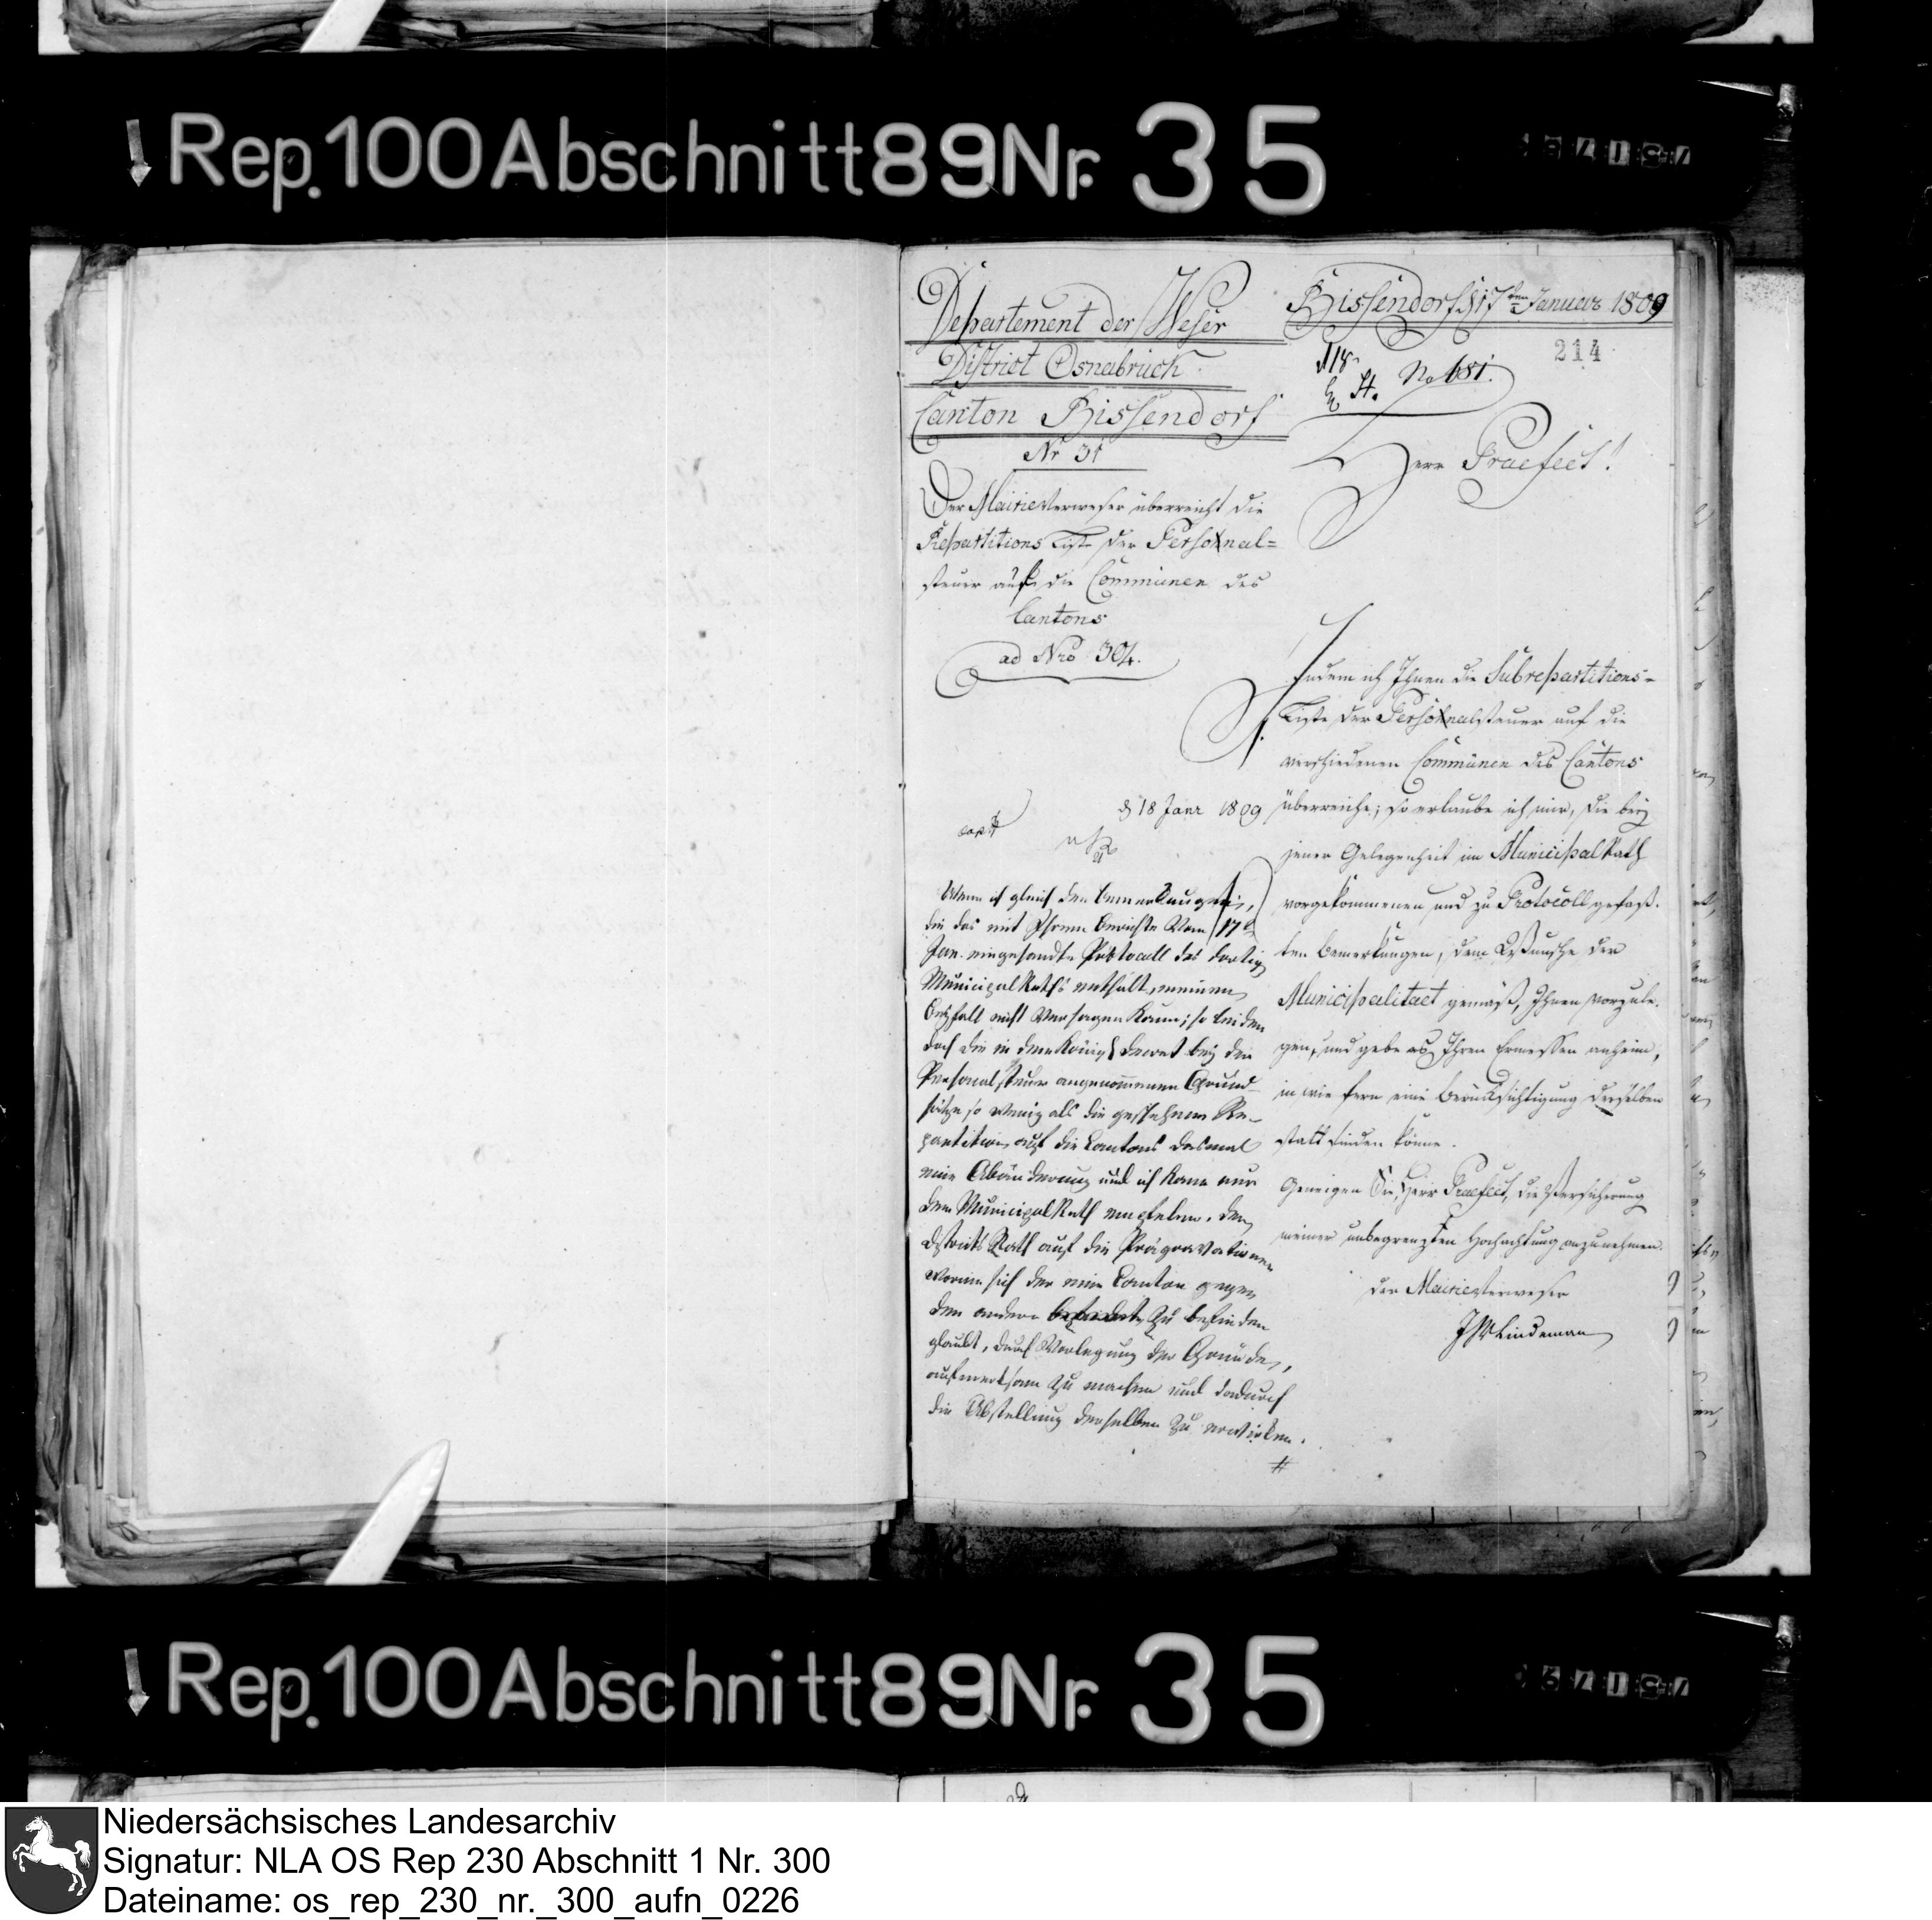 Rep. 100 Abschnitt 89 Nr. 35
Departement der Weser
District Osnabrück
Canton Bissendorf
Nr 31
Der Mairieverweser überreicht die
Repartitions Liste der Personal=
steuer auf die Communen des
Cantons
ad Nro 304.
Bissendorf d 17ten Januar 1809
214
No 681.
Herr Praefect!
Indem ich Ihnen die Subrepartitions-
Liste der Personalsteuer auf die
verschiedenen Communen des Cantons
überreiche; so erlaube ich mir, die bey
jener Gelegenheit im Municipal Rath
vorgekommenen und zu Protocoll gefaß-
ten Bemerkungen, dem Wunsche der
Municipalitaet gemäß, Ihnen vorzule-
gen, und gebe es Ihrem Ermessen anheim,
in wie fern eine Berücksichtigung derselben
statt finden könne.
Geneigen Sie, Herr Praefect, die Versicherung
meiner unbegrenzten Hochachtung anzunehmen.
Der Mairieverweser
Lindeman
d 18 Janr 1809
Wenn ich gleich den Bemerkungen,
die das mit Ihrem Berichte vom 17t
Jan. eingesandte Protocoll des dortig
Municipal Raths enthält, meinen
Beyfall nicht versagen kann; so leiden
doch die in dem Königl Decret bey der
Personalsteuer angenommenen Grund-
sätze so wenig als die geschehene Re-
partition auf die Cantons dasmal
eine Abänderung und ich kann nur
dem Municipal Rath empfelen, den
Districts Rath auf die Prägravationen
worin sich der eine Canton gegen
den andern zu befinden
glaubt, durch Vorlegung der Gründe,
aufmerksam zu machen und dadurch
die Abstellung derselben zu erwirken.
Rep. 100 Abschnitt 89 Nr. 35
Niedersächsisches Landesarchiv
Signatur: NLA OS Rep 230 Abschnitt 1 Nr. 300
Dateiname: os_rep_230_nr._300_aufn_0226